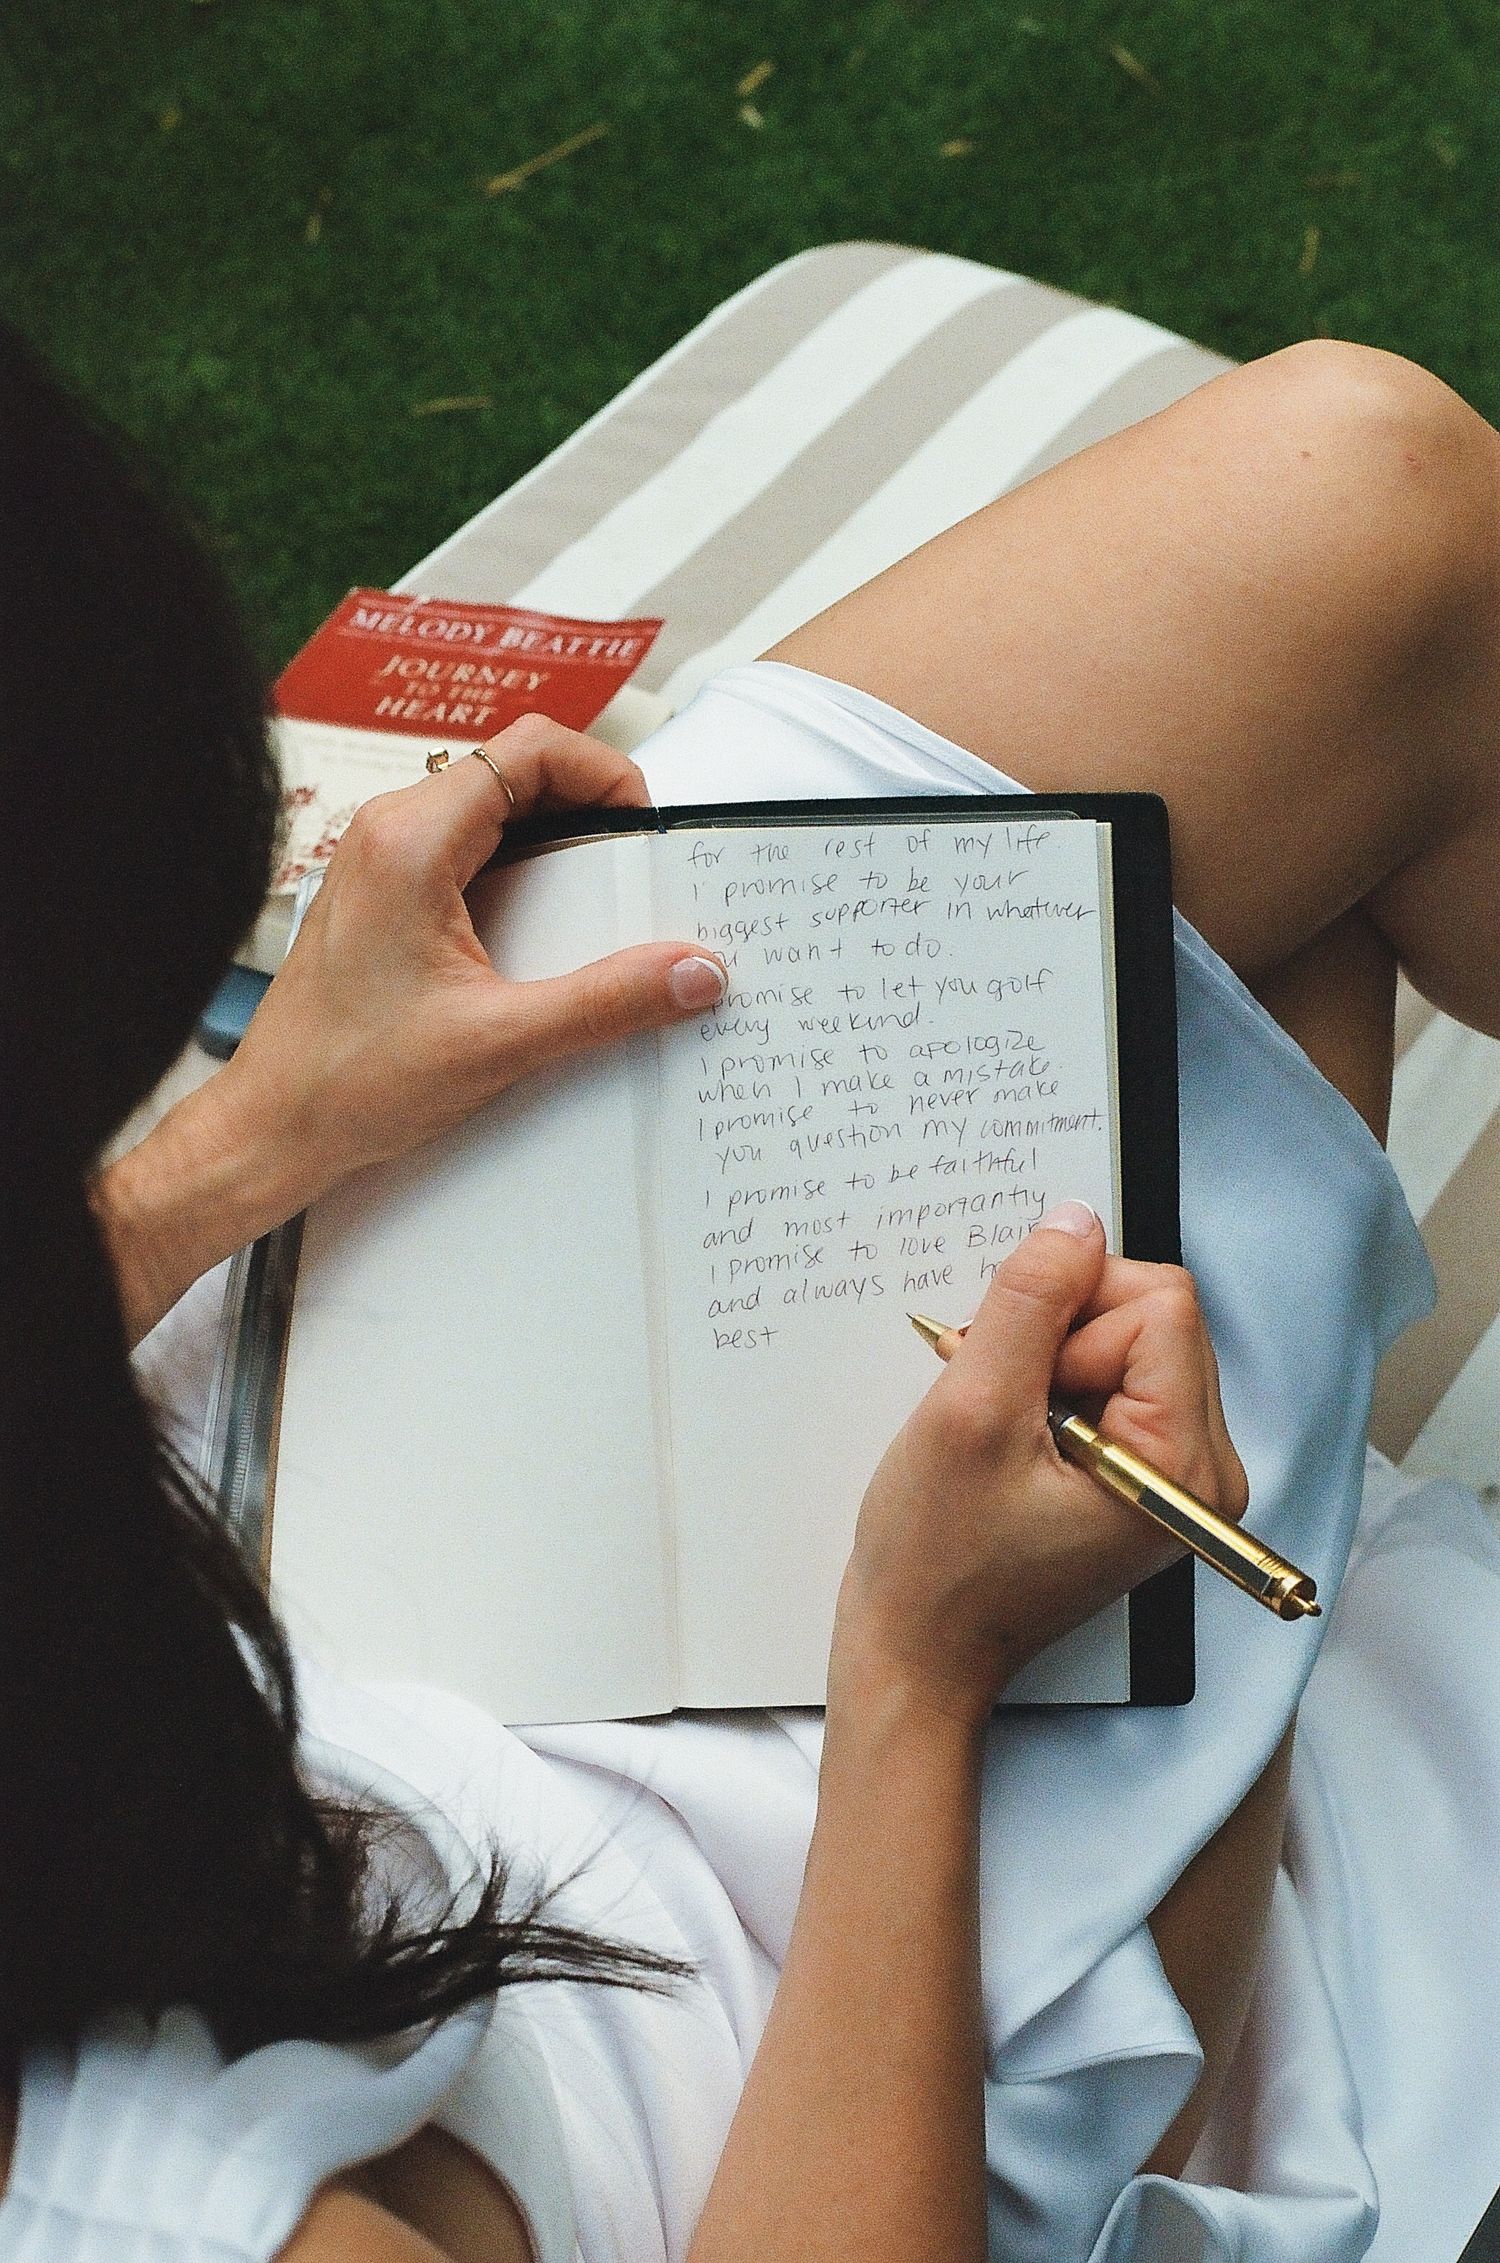 MELODY BEATTIE
JOURNEY
TO THE
HEART
for the rest of my life.
I promise to be your
biggest supporter in whatever
you want to do.
promise to let you golf
every weekend.
I promise to apologize
when I make a mistake.
I promise to never make
you question my commitment.
I promise to be faithful
and most importantly
I promise to love Blair
and always have
best